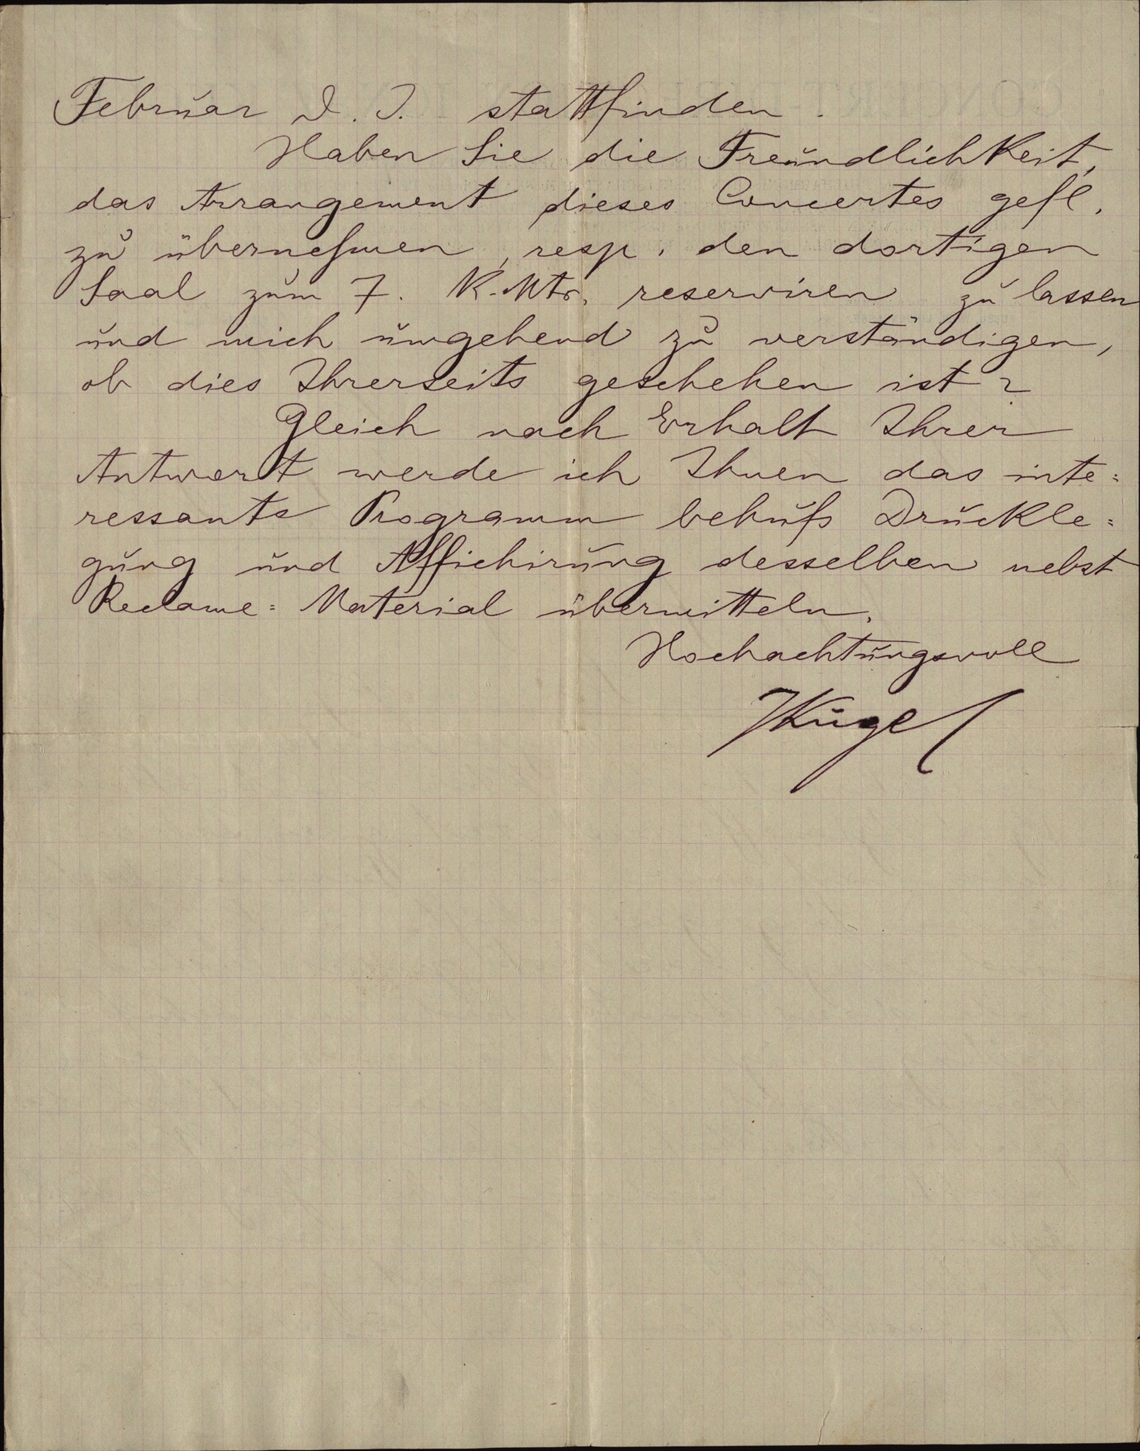 Februar d. J. stattfinden.
Haben Sie die Freundlichkeit,
das Arrangement dieses Concertes gefl.
zu übernehmen, resp. den dortigen
Saal zum 7. K. Mts. reserviren zu lassen
und mich umgehend zu verständigen,
ob dies Ihrerseits geschehen ist?
Gleich nach Erhalt Ihrer
Antwort werde ich Ihnen das inte=
ressante Programm behufs Druckle=
gung und Affichirung desselben nebst
Reclame=Material übermitteln.
Hochachtungsvoll
JKugel